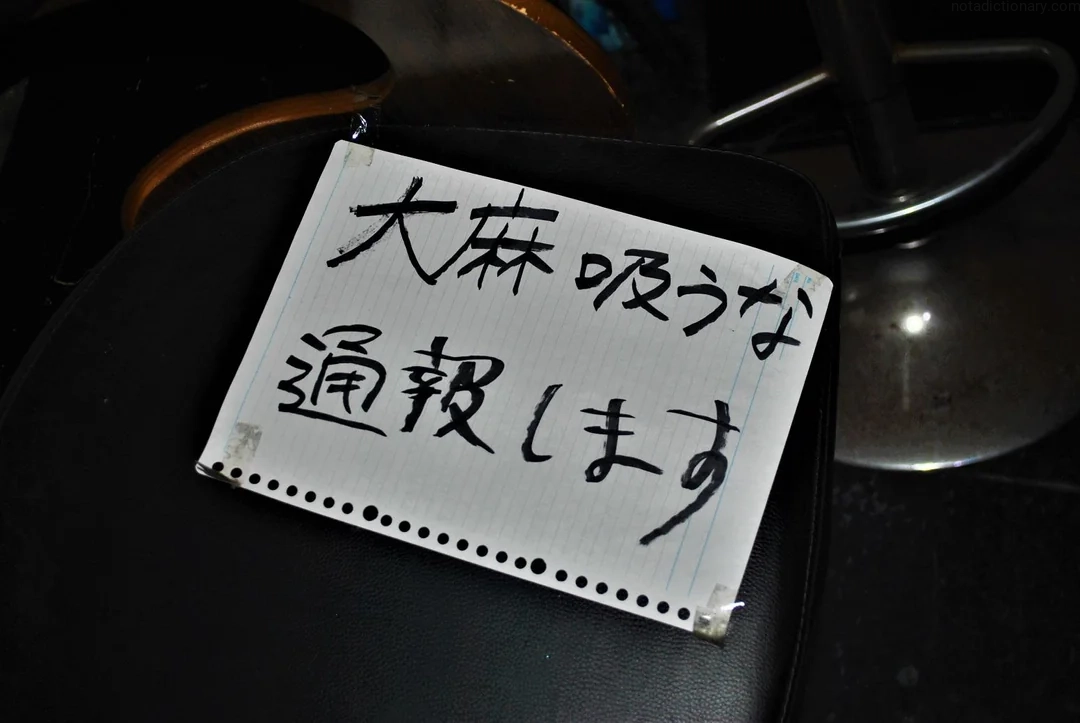 notadictionary.com
大麻吸うな
通報します